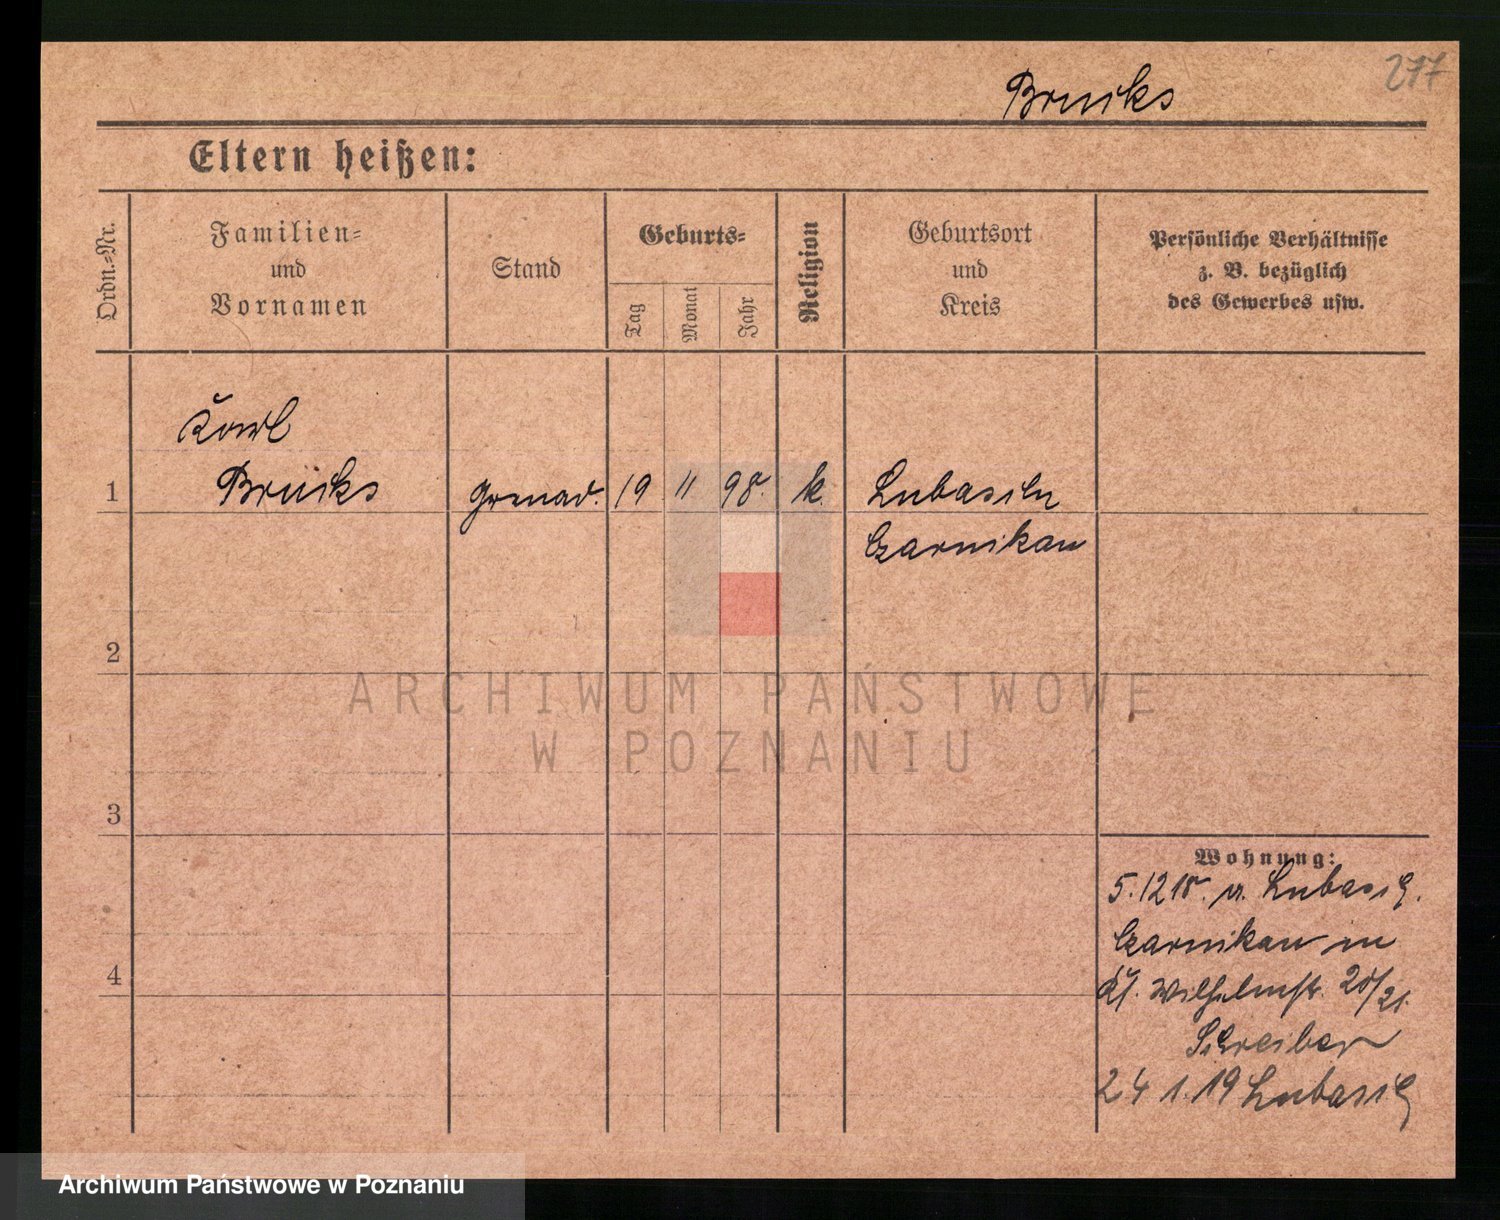 277
Bruiks
Eltern heißen:
Ordn.-Nr.
Familien-
und
Vornamen
Stand
Geburts-
Tag
Monat
Jahr
Religion
Geburtsort
und
Kreis
Persönliche Verhältnisse
z. B. bezüglich
des Gewerbes usw.
Karl
1 Bruiks Grenad. 19 11 98. k. Lubasch
Czarnikau
2
3
4
Wohnung:
5.12 18. v. Lubasch.
Czarnikau in
Wilhelmstr. 20/21.
Schreiber
24 1.19 Lubasch
ARCHIWUM PAŃSTWOWE
W POZNANIU
Archiwum Państwowe w Poznaniu